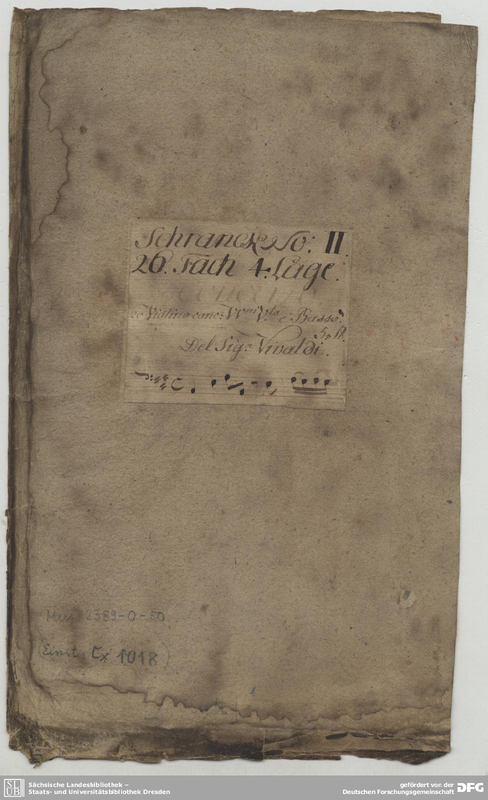 Schranck No: II.
26. Fach 4. Lage.
co Violino conc: V.ni V.la e Basso.
Del Sig: Vivaldi.
Mus. 2389-O-50
(Einst. Cx 1018)
SLUB
Sächsische Landesbibliothek –
Staats- und Universitätsbibliothek Dresden
gefördert von der
Deutschen Forschungsgemeinschaft
DFG